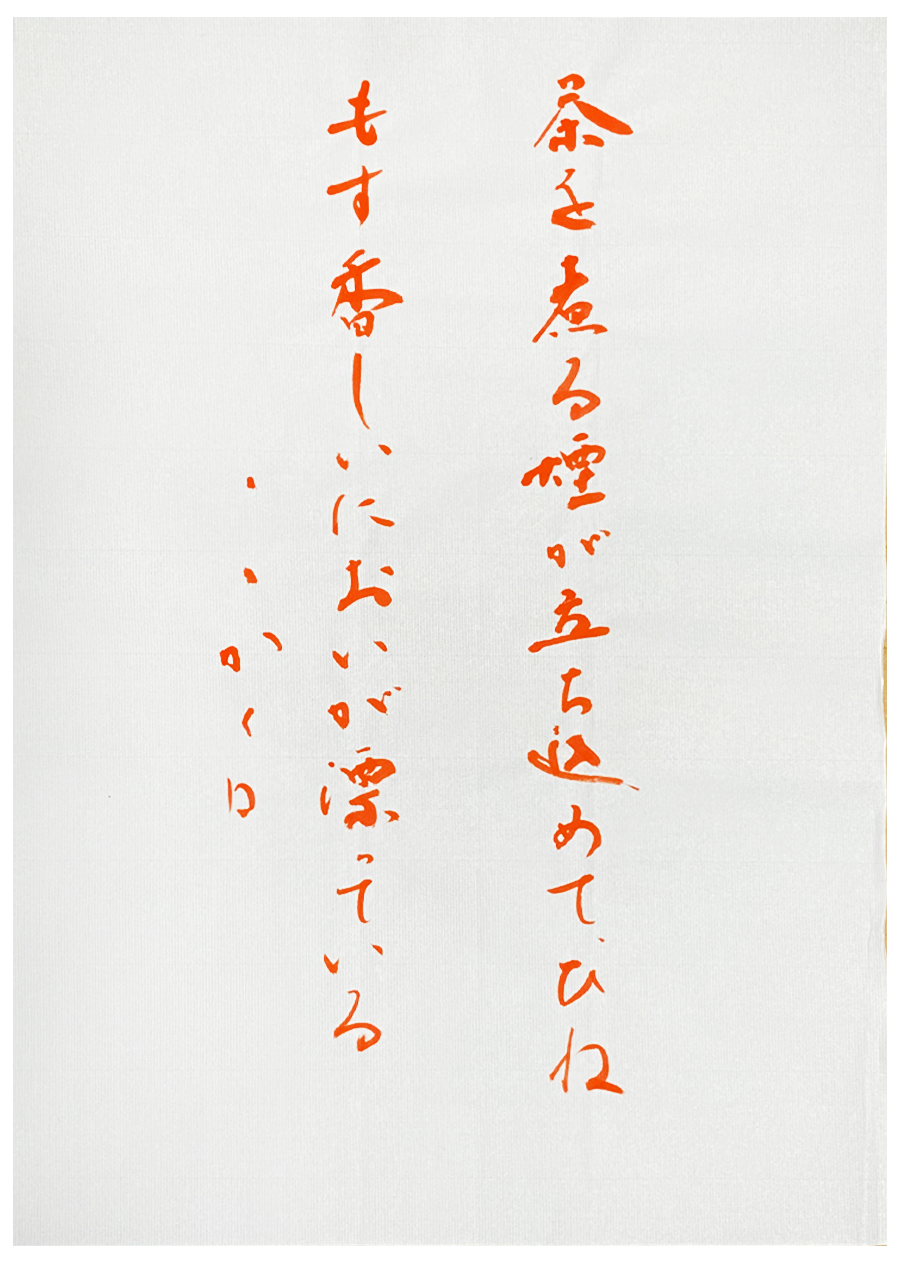 茶を煮る煙が立ち込めてひね
もす香しいにおいが漂っている